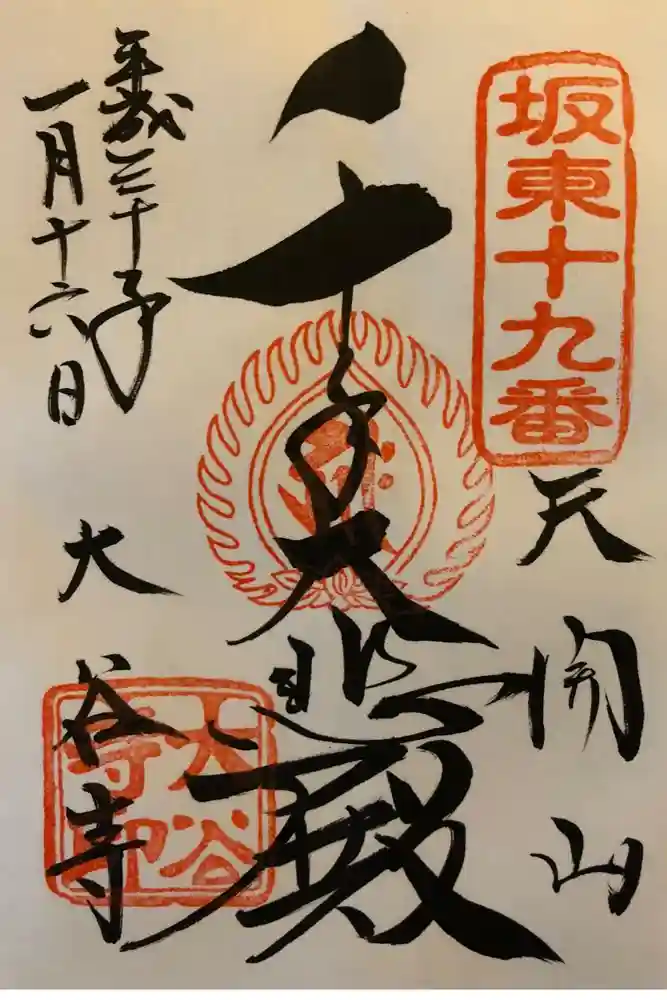 坂東十九番
天開山
千手大悲殿
平成三十年
一月十六日
大谷寺
大谷寺印